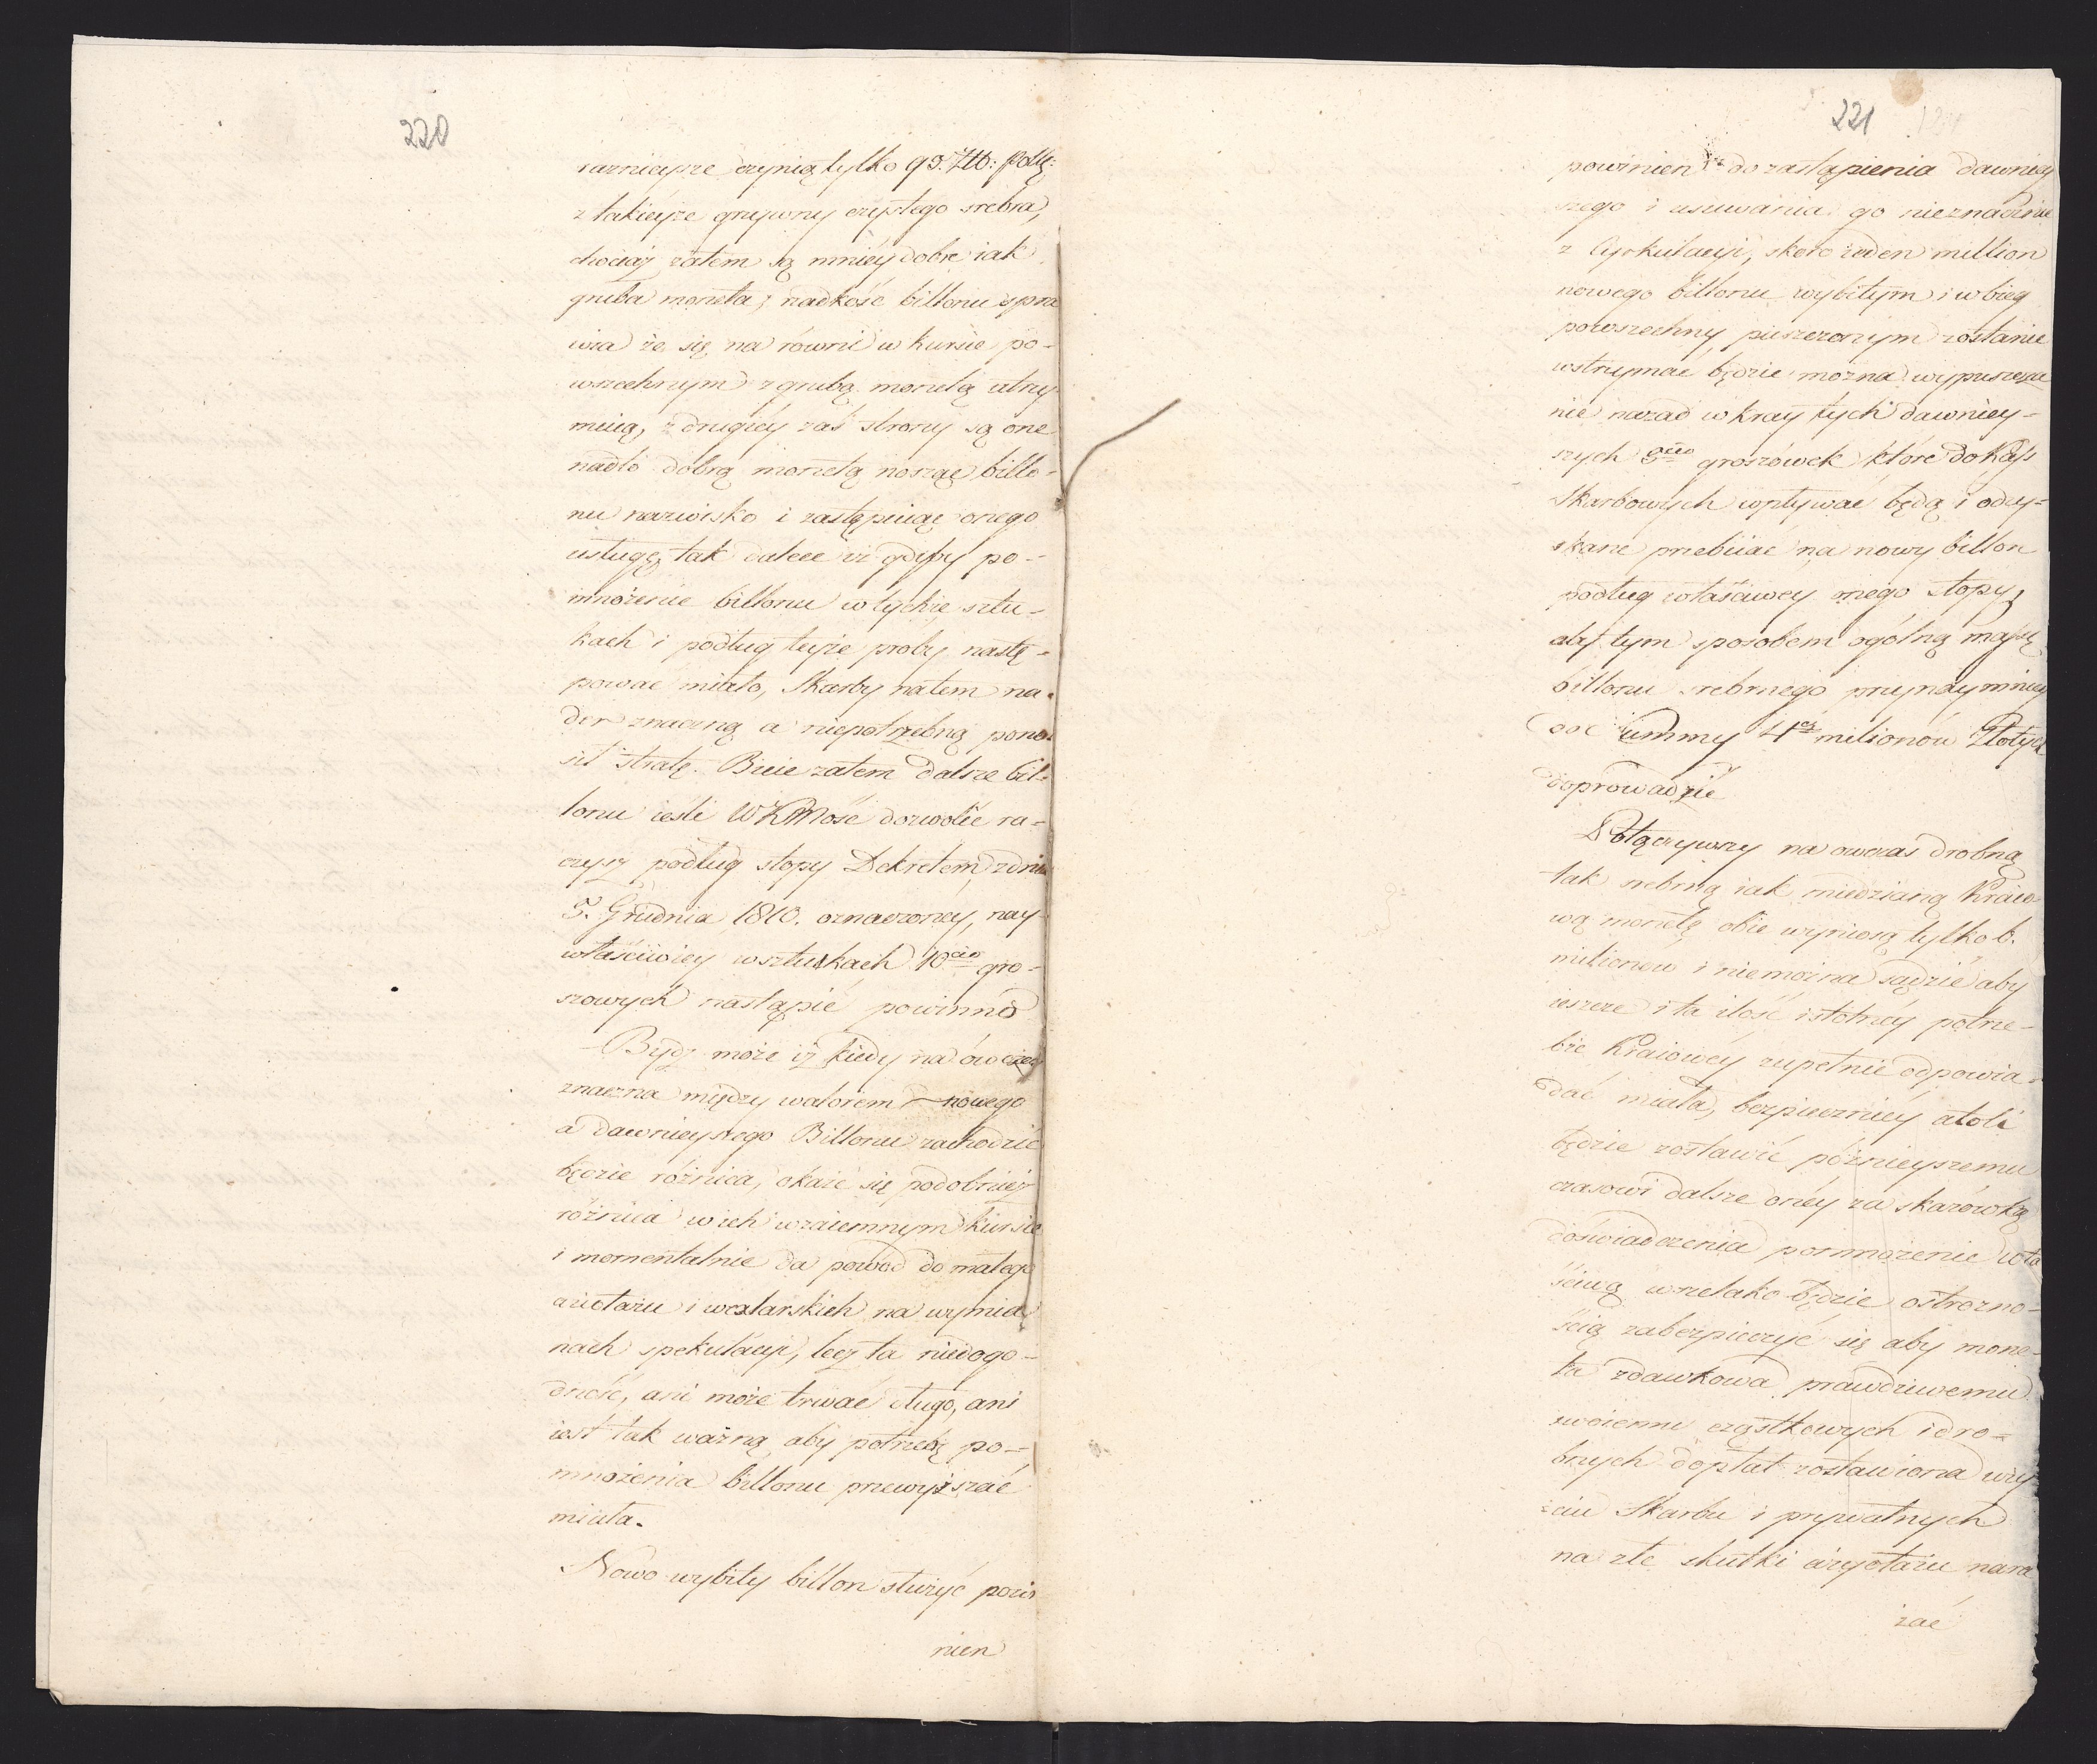 220
raznieysze czynią tylko 93. Złł: Polś:
z takieyże grzywny czystego srebra,
chociaż zatem są mniéy dobre iak
gruba moneta, rzadkość billonu spra
wia że się na równi w kursie po-
wszechnym z grubą monetą utrzy-
muią, z drugiéy zaś strony są one
nadto dobrą monetą nosząc billo-
nu nazwisko i zastępuiąc onego
usługę, tak dalece iż gdyby po-
mnożenie billonu w tychże sztu-
kach i podług teyże proby nastę-
pować miało, Skarby na tem na-
der znaczną a niepotrzebną pono-
sił stratę. Bicie zatem dalsze bil-
lonu ieśli WKMość dozwolić ra-
czysz podług stopy Dekretem z dnia
5. Grudnia 1810. oznaczoney, nay-
właściwiey w sztukach 10cio gro-
szowych nastąpić powinno
Bydź może iż kiedy na ówczas
znaczna między walorem nowego
a dawnieyszego Billonu zachodzić
będzie różnica, okaże się podobnież
różnica w ich wzaiemnym kursie
i momentalnie da powód do małego
ażiotażu i wexlarskich na wymia
nach spekulacyi, lecz ta niedogo-
dność, ani może trwać długo, ani
iest tak ważną aby potrzebę po-
mnożenia billonu przewyższać
miała.
Nowo wybity billon służyć powi
nien
221
powinien do zastąpienia dawniey
szego i usuwania go nieznacznie
z Cyrkulacyi, skoro ieden million
nowego billonu wybitym i w bieg
powszechny puszczonym zostanie
wstrzymać będzie można wypuszcza
nie nazad w kray tych dawniey-
szych 5cio groszówek które do Kass
Skarbowych wpływać będą i odzy-
skane przebiiać na nowy billon
podług właściwey onego stopy,
aby tym sposobem ogólną massę
billonu srebrnego przynaymniey
do Summy 4ch milionów Złotych
doprowadzić
Połączywszy na owczas drobną
tak srebrną iak miedzianą Kraio
wą monetę obie wyniosą tylko 6.
milionow i nie można sądzić aby
ieszcze i ta ilość istotnéy potrze-
bie Kraiowéy zupełnie odpowia-
dać miała, bezpieczniéy atoli
będzie zostawić póżnieyszemu
czasowi dalsze onéy za skazówką
doświadczenia pomnożenie wła
ściwą wszelako będzie ostrożno-
ścią zabezpieczyć się aby mone-
ta zdawkowa prawdziwemu
swoiemu cząstkowych i dro-
bnych dopłat zostawiona uży
ciu Skarbu i prywatnych
na złe skutki ażyotażu nara
żać